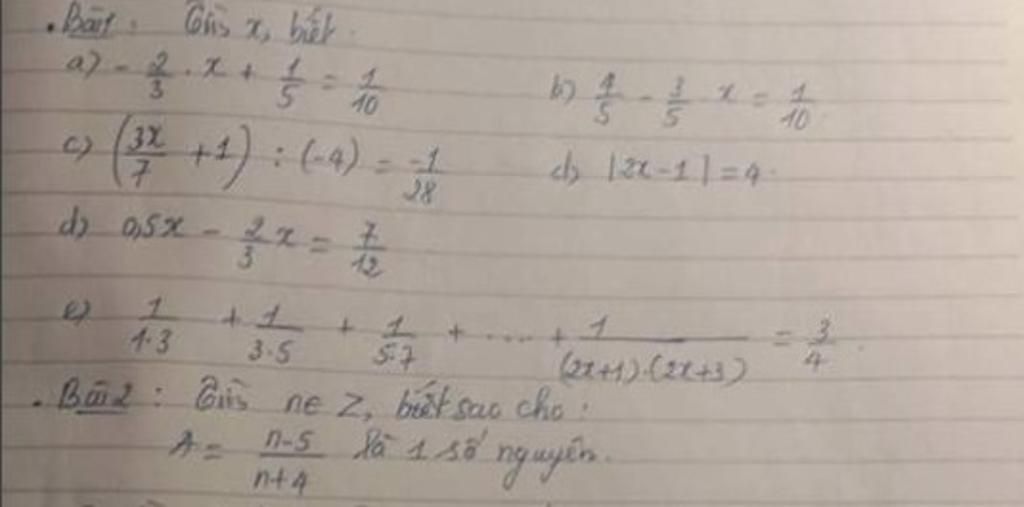 . Bài 1 : Tìm x, biết .
a) - 2/3 . x + 1/5 = 1/10 b) 4/5 - 3/5 x = 1/10
c) (3x/7 + 1) : (-4) = -1/28 d) |2x - 1| = 4.
d) 0,5x - 2/3 x = 7/12
e) 1/1.3 + 1/3.5 + 1/5.7 + .... + 1/(2x+1).(2x+3) = 3/4 .
. Bài 2 : Tìm n ∈ Z, biết sao cho :
A = n-5/n+4 là 1 số nguyên.